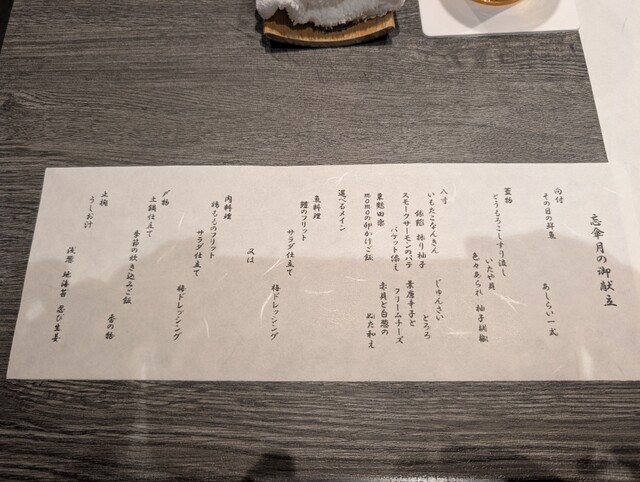 忘傘月の御献立
向付
その日の鮮魚 あしらい一式
蓋物
とうもろこしすり流し
いたや貝
色々あられ 柚子胡椒
八寸
いもたこなんきん じゅんさい
銀餡 振り柚子 とろろ
スモークサーモンのパテ 葉唐辛子と
バケット添え クリームチーズ
粟麩田楽 赤貝と白葱の
momoの卵かけご飯 ぬた和え
選べるメイン
魚料理
鱧のフリット
サラダ仕立て
梅ドレッシング
又は
肉料理
鶏もものフリット
サラダ仕立て
梅ドレッシング
〆物
土鍋仕立て
季節の炊き込みご飯
香の物
止椀
うしお汁
浅葱 地海苔 忍び生姜